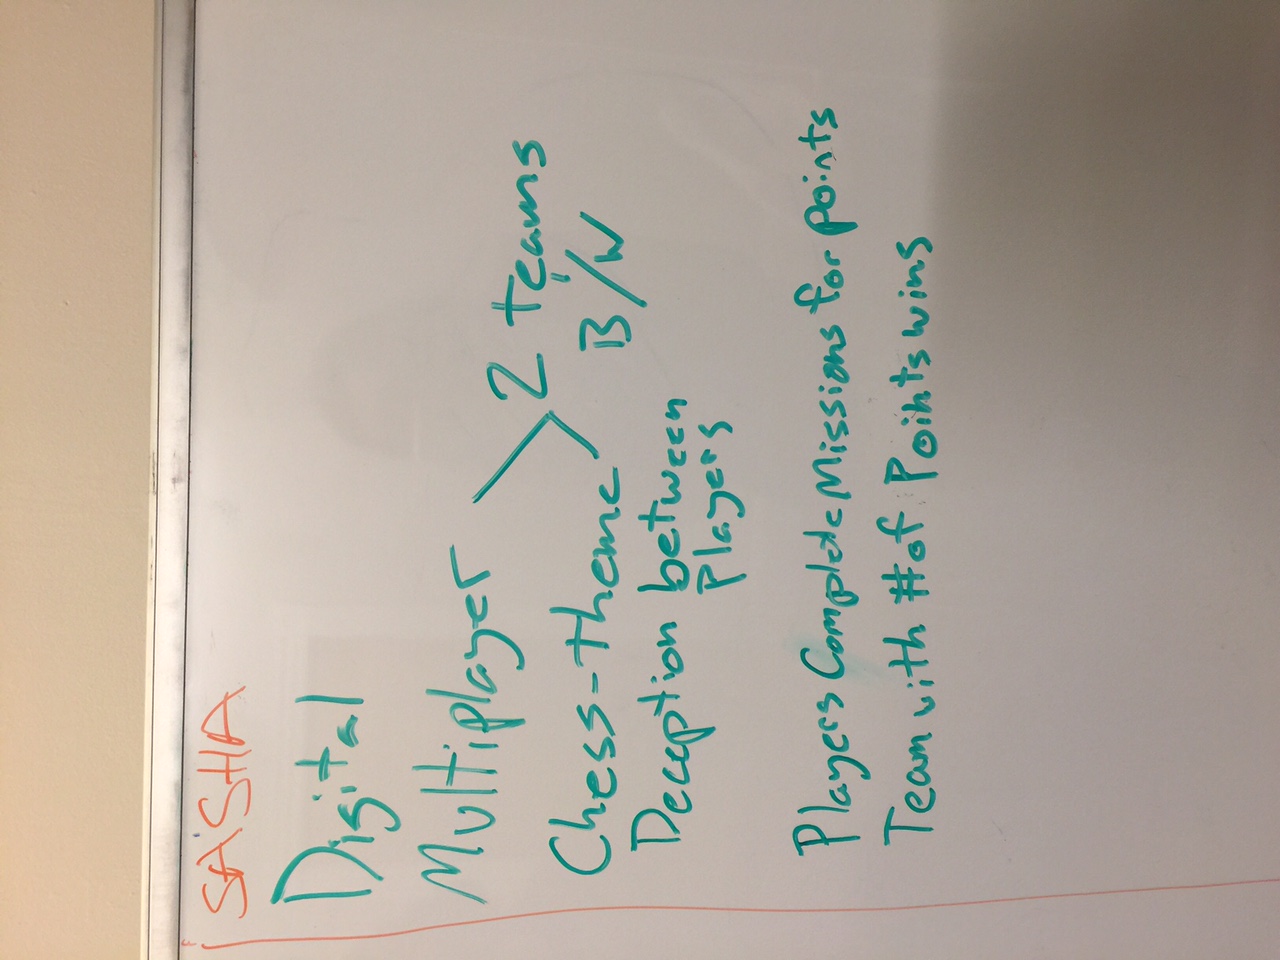 SASHA
Digital
Multiplayer
2 teams
B/W
Chess-theme
Deception between
Players
Players Complete Missions for points
Team with # of Points wins